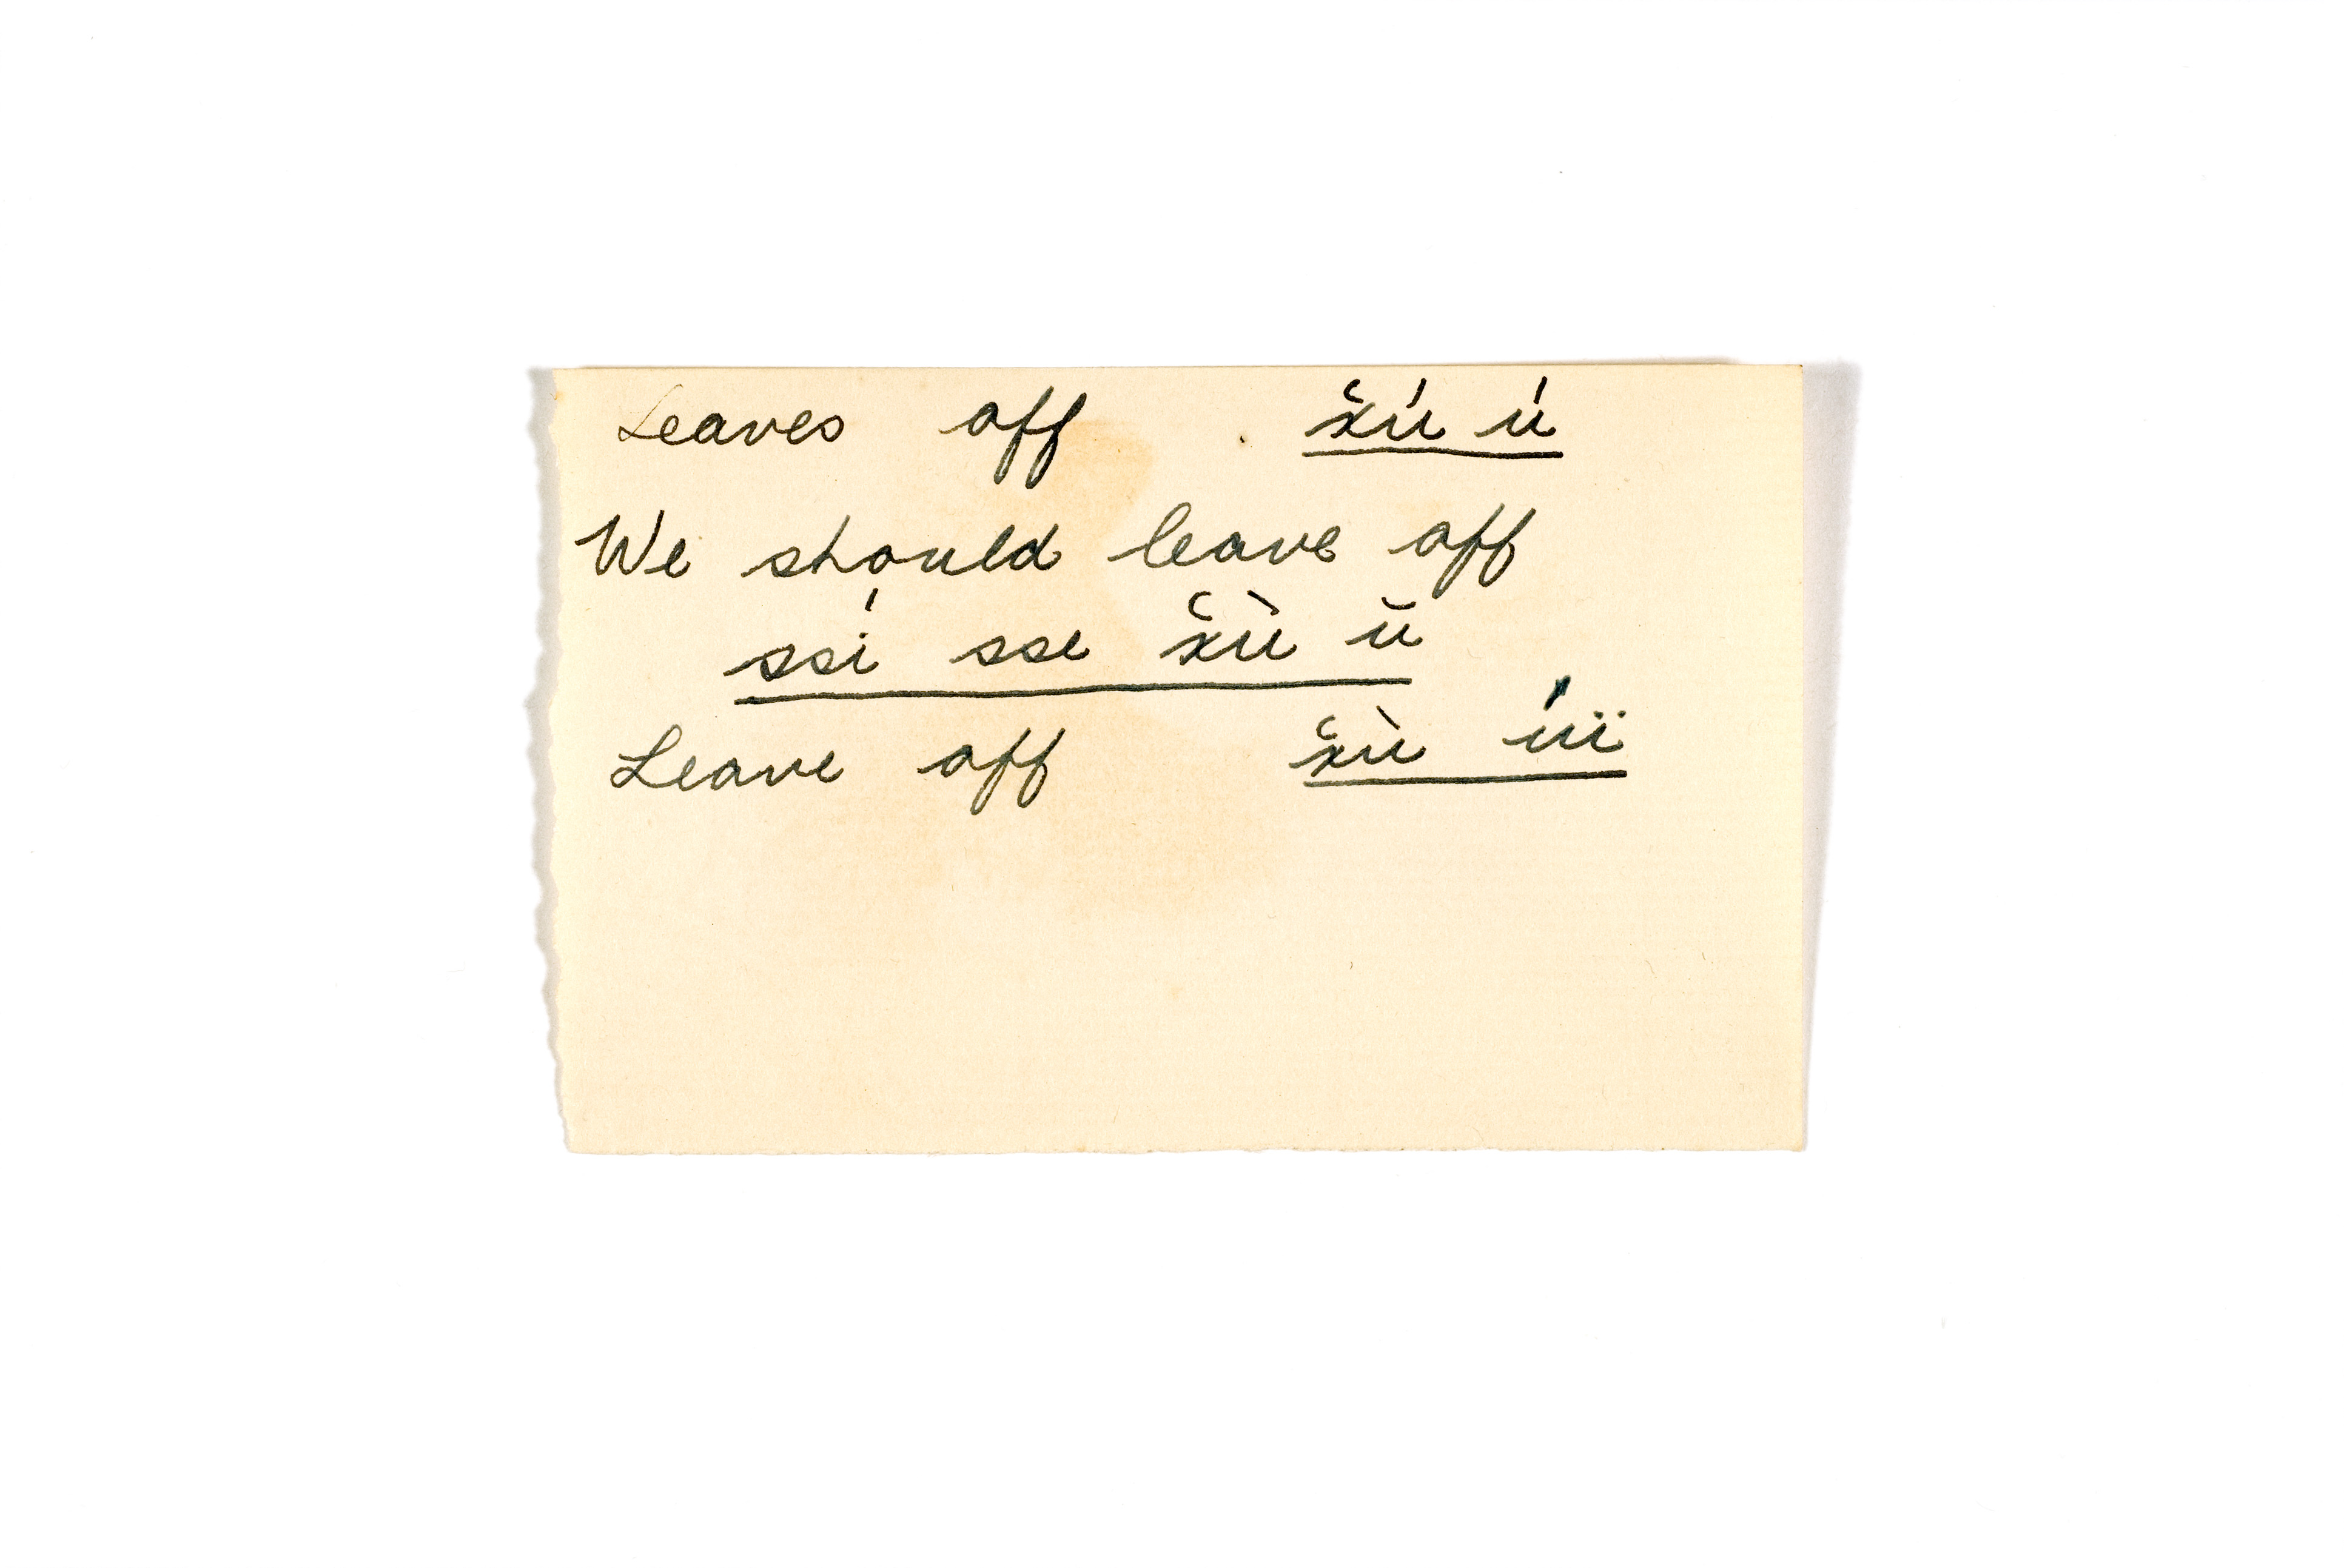 Leaves off x̌ú ú
We should leave off
ssí sse x̌ù ŭ
Leave off x̌ù úï